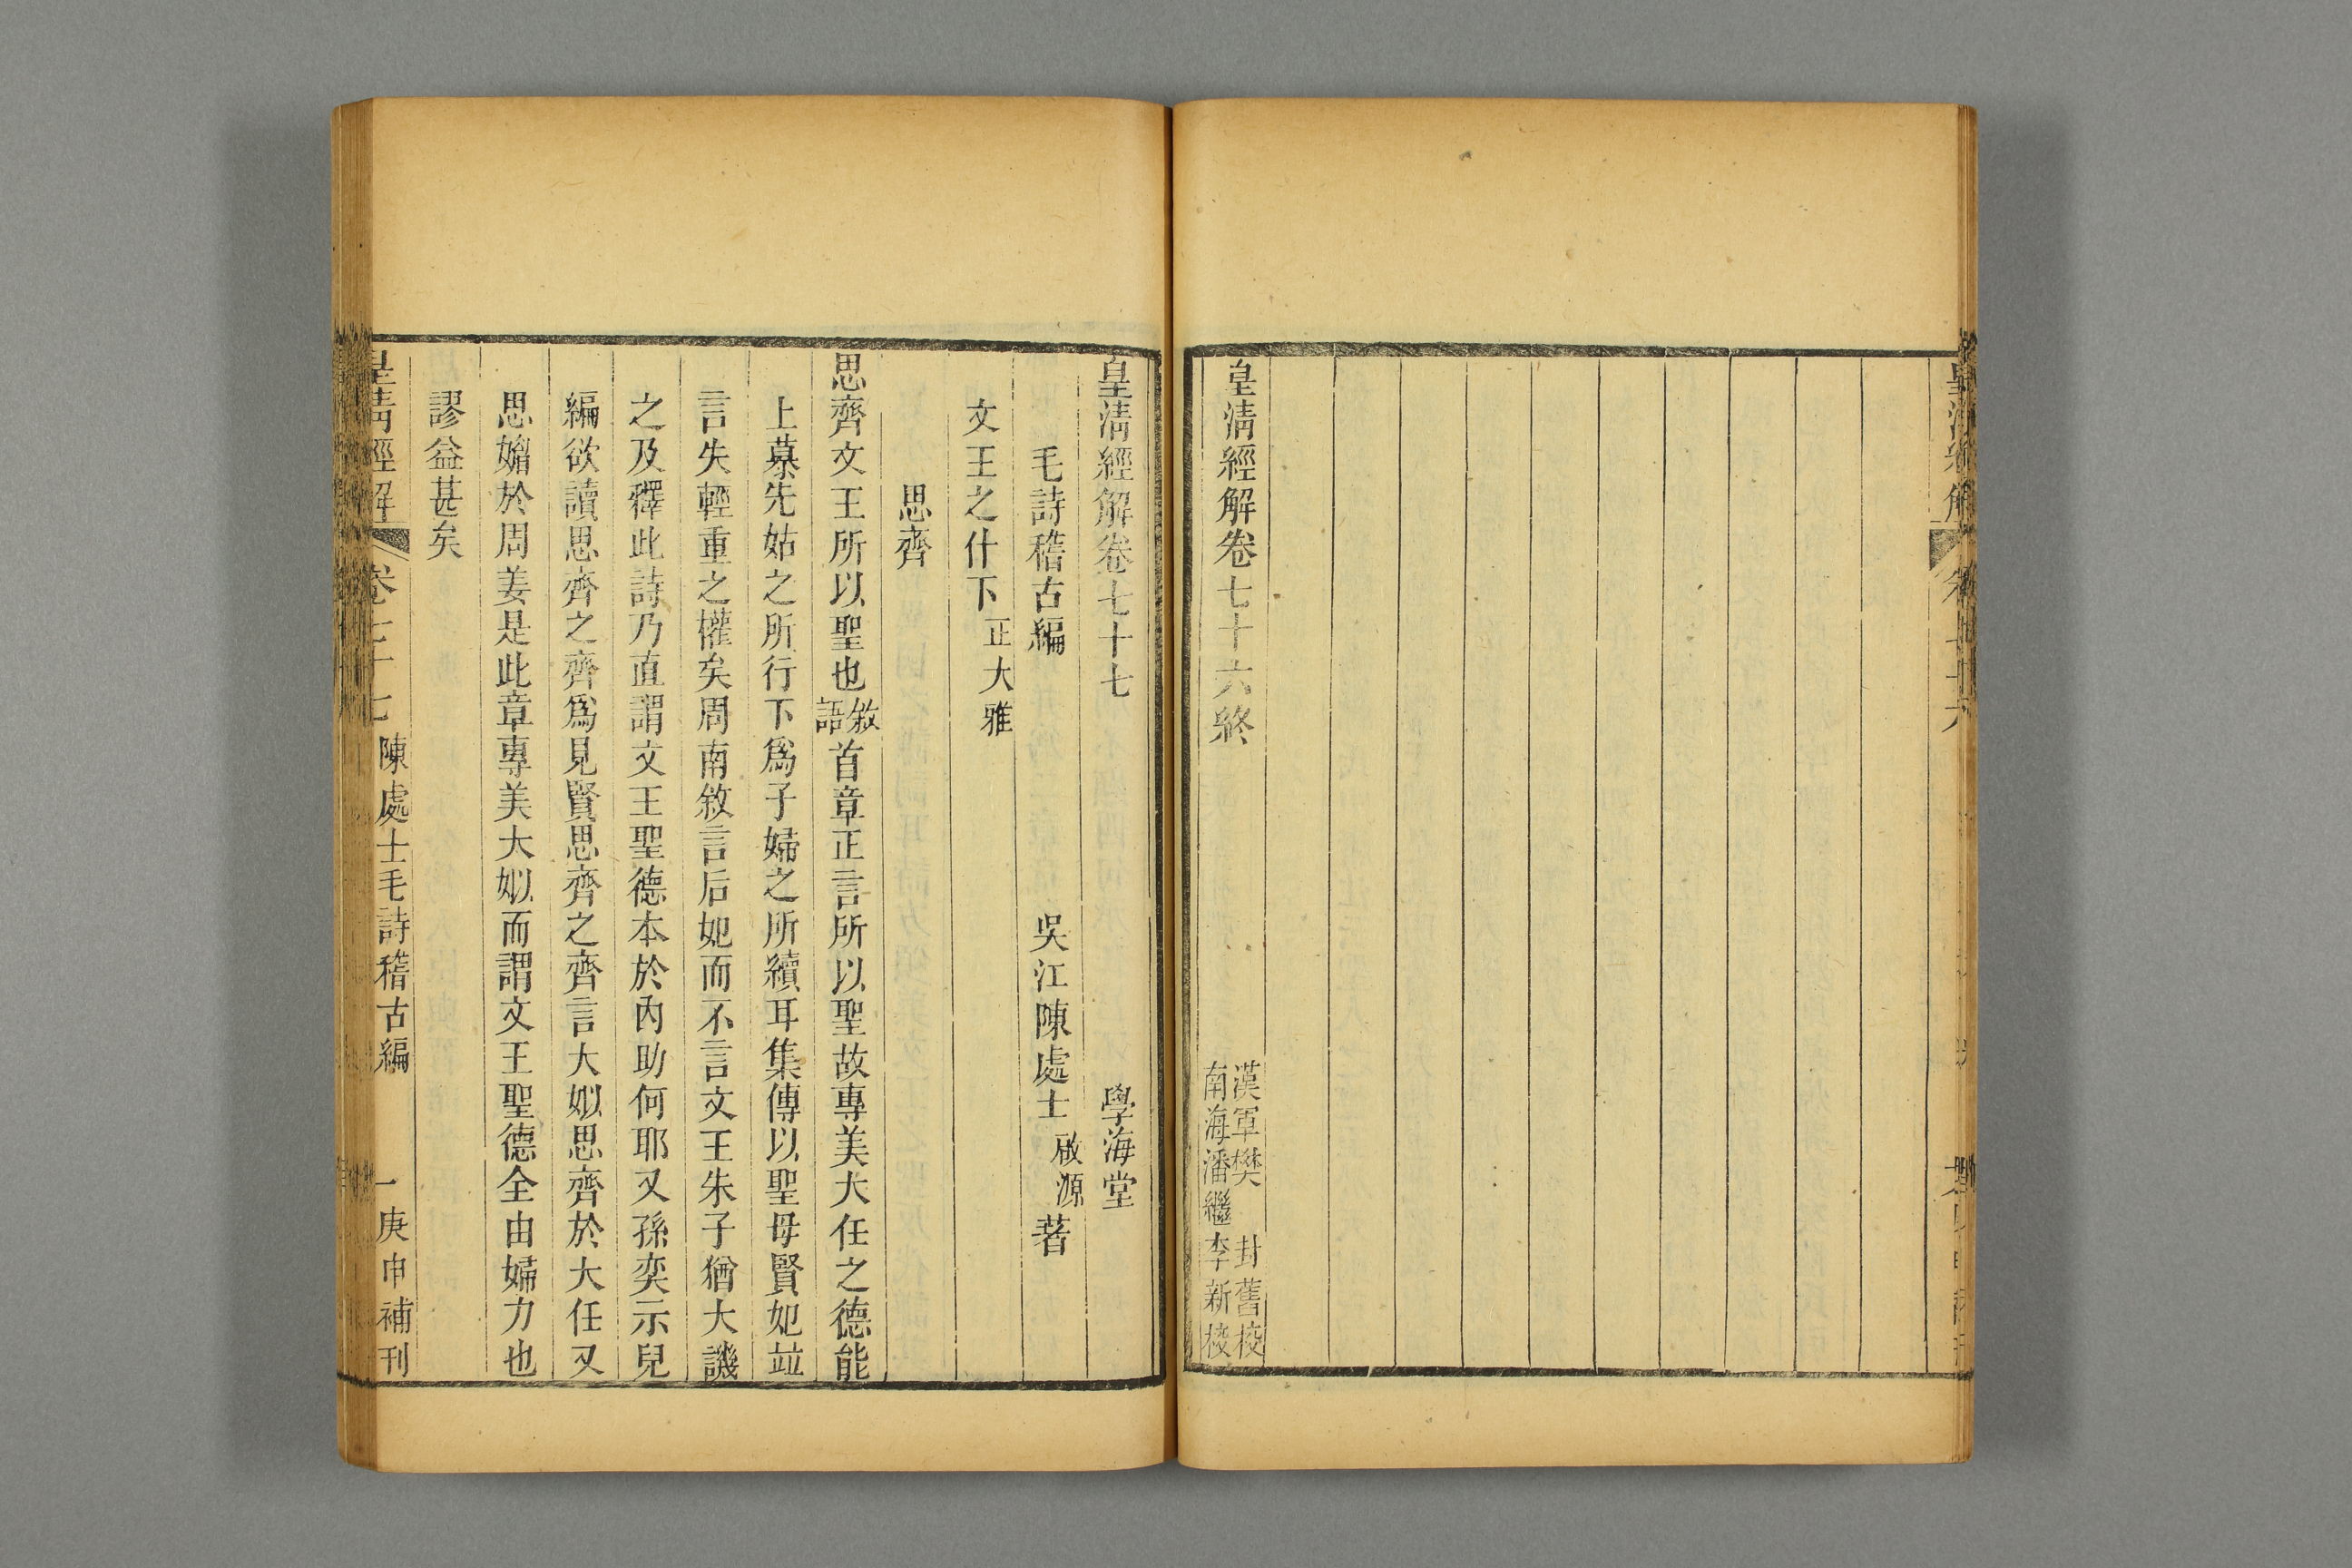 皇清經解卷七十六終
漢軍樊封舊校
南海潘繼李新校
皇清經解卷七十七
學海堂
毛詩稽古編
吳江陳處士啟源著
文王之什下正大雅
思齊
思齊文王所以聖也敘語首章正言所以聖故專美大任之德能
上慕先姑之所行下爲子婦之所續耳集傳以聖母賢妃竝
言失輕重之權矣周南敘言后妃而不言文王朱子猶大譏
之及釋此詩乃直謂文王聖德本於內助何耶又孫奕示兒
編欲讀思齊之齊爲見賢思齊之齊言大姒思齊於大任又
思媚於周姜是此章專美大姒而謂文王聖德全由婦力也
謬益甚矣
皇清經解
卷七十七
陳處士毛詩稽古編
一
庚申補刊